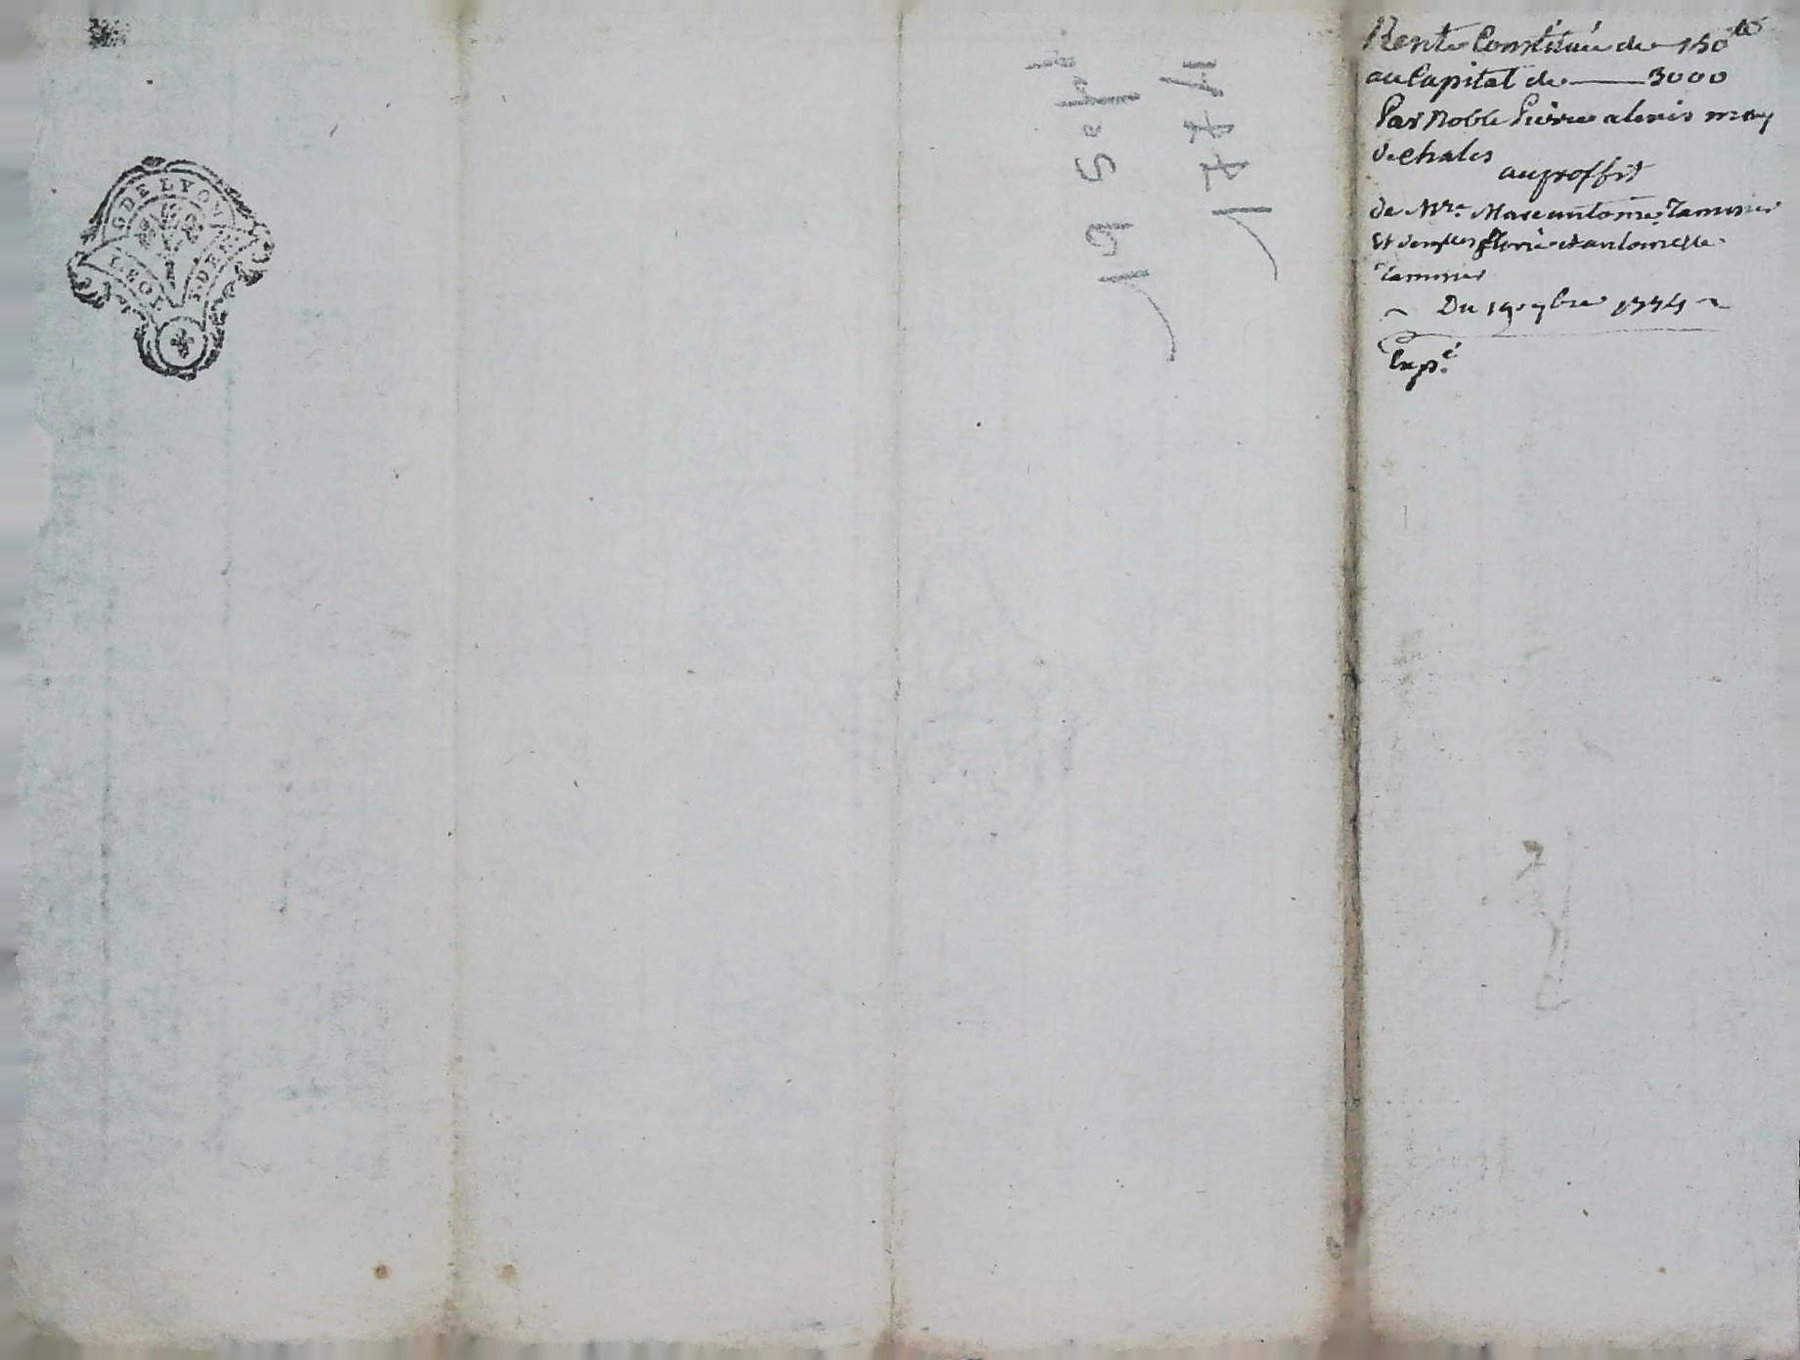 G DE LYON
Rente Constituée de 150ᵗᵗ
au Capital de —— 3000
Par Noble Pierre alexis mey
de chales
au proffit
de Mre. Marc antoine Tamisier
Et demlles florie et antoinette
Tamisier
Du 19 7bre 1774
Expé.
19 Sept
1774